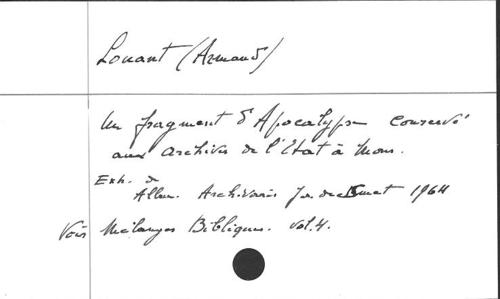 Louant (Armand)
Un fragment d'Apocalypse conservé
aux Archives de l'Etat à Mons.
Ext. de
Album Archivaris Jos. de Smet 1964
Voir Mélanges Bibliques. vol. 4.